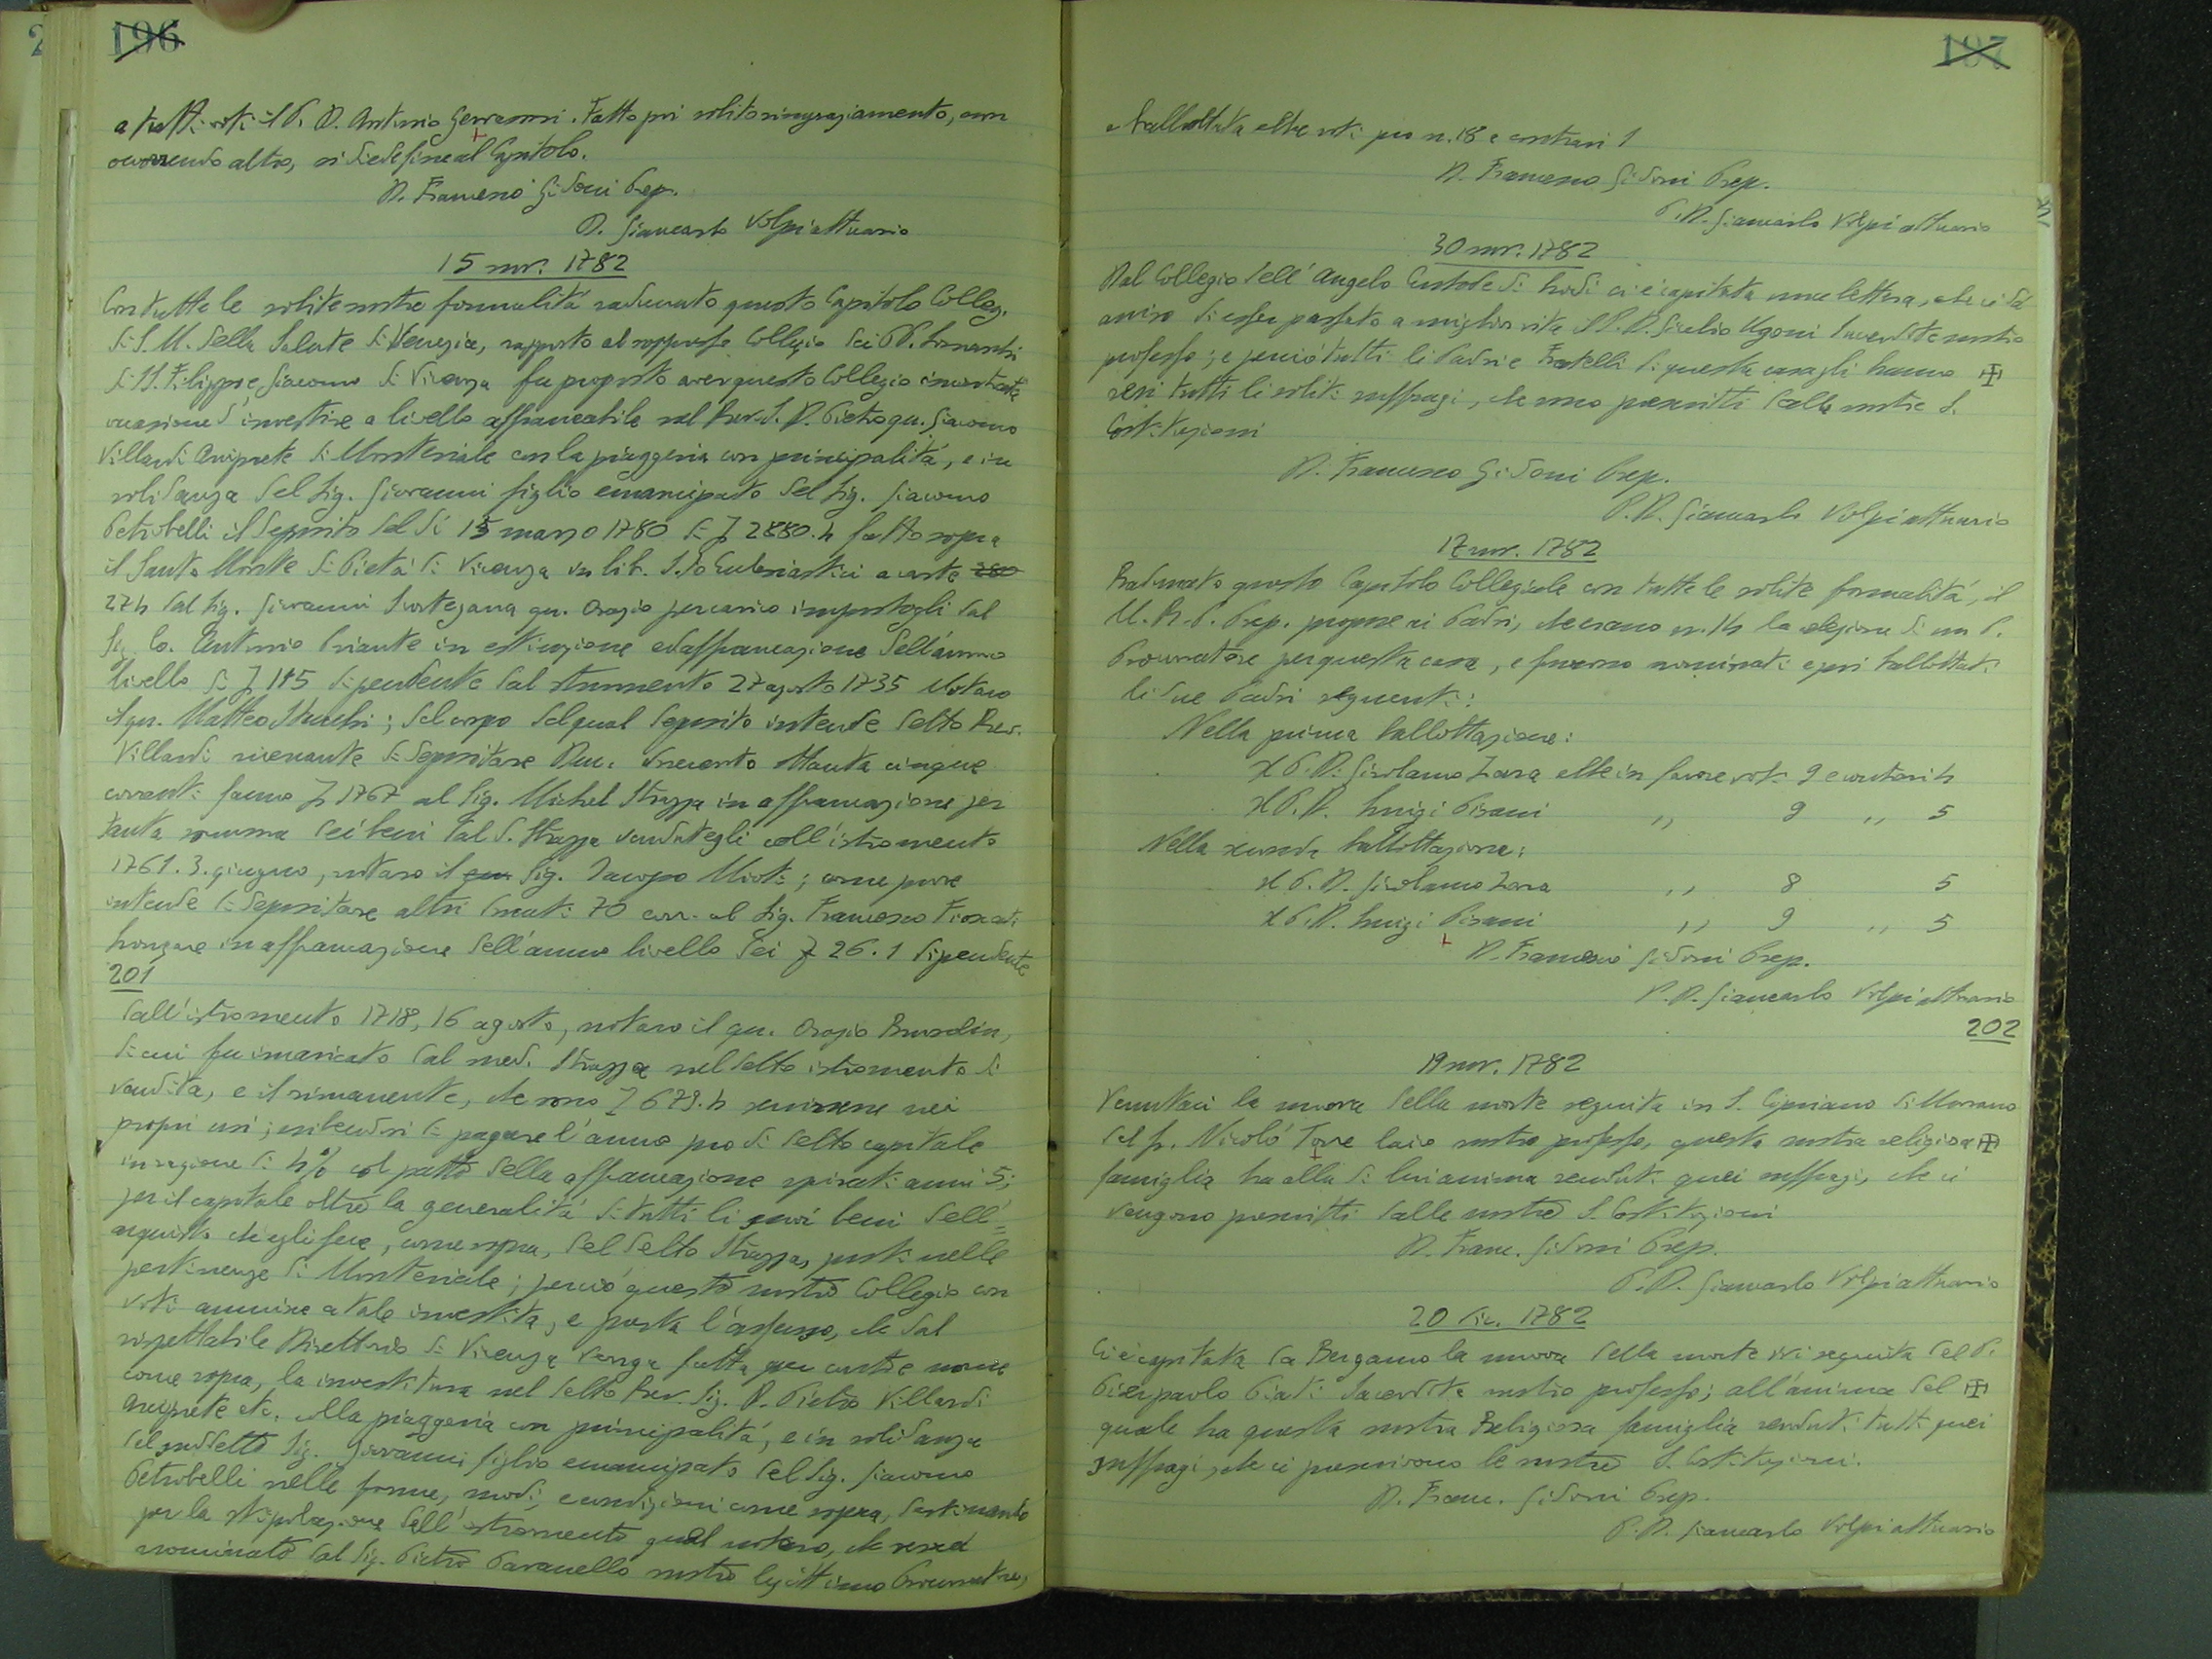 196
a tutti voti il P. D. Antonio Gervasoni. Fatto poi solito ringraziamento, non
occorrendo altro, si diede fine al Capitolo.
D. Francesco Gidoni Prep.
D. Giancarlo Volpi attuario
15 nov. 1782
Con tutte le solite nostre formalità radunato questo Capitolo Colleg.
di S. M. della Salute di Venezia, rapporto al soppresso Collegio dei PP. Somaschi
di SS. Filippo e Giacomo di Vicenza fu proposto aver questo Collegio incontrata
occasione d'investire a livello affrancabile nel Rev. S. D. Pietro qu. Giacomo
Villardi Arciprete di Monteviale con la pieggeria con principalità, e in
solidanza del Sig. Giovanni figlio emancipato del Sig. Giacomo
Petrobelli il deposito del dì 15 marzo 1780 di Z 2880.4 fatto sopra
il Santo Monte di Pietà di Vicenza in lib. S.to Ecclesiastici a carte 280
274 dal Sig. Giovanni qu. Orazio per carico impostogli dal
Sig. Co. Antonio Priante in estinzione ed affrancazione dell'annuo
livello di Z 145 dipendente dal strumento 27 agosto 1735 Notaro
il qu. Matteo ; del corpo del qual deposito intende detto Rev.
Villardi ricevante di depositare Duc. trecento ottanta cinque
correnti fanno Z 1767 al Sig. Michel Strazza in affrancazione per
tanta somma dei beni dal S. Strazza vendutegli coll'istromento
1761. 3. giugno, notaro il qu. Sig. Iacopo Mioti; come pure
intende di depositare altri Ducati 70 corr. al Sig. Francesco
in affrancazione dell'annuo livello dei Z 26.1 dipendente
201
dall'istromento 1718, 16 agosto, notaro il qu. Orazio
di cui fu incaricato dal med. Strazza nel detto istromento di
vendita, e il rimanente, che sono Z 679.4 in
propri usi; esibendosi di pagare l'annuo pro di detto capitale
in ragione di 4% col patto della affrancazione spirati anni 5;
per il capitale oltre la generalità di tutti li suoi beni dell'=
acquisto ch'egli fece, come sopra, del detto Strazza, posti nelle
pertinenze di Monteviale; perciò questo nostro Collegio con
voti annuire a tale investita, e presta l'assenso, che dal
rispettabile Direttorio di Vicenza venga fatta, per conto e nome
come sopra, la investitura nel detto Rev. Sig. D. Pietro Villardi
Arciprete etc. colla pieggeria con principalità, e in solidanza
del suddetto Sig. Giovanni figlio emancipato del Sig. Giacomo
Petrobelli nelle forme, modi, e condizioni come sopra, destinando
per la stipolazione dell'istromento quel notaro, che sarà
nominato dal Sig. Pietro Paravello nostro legittimo Procuratore,
197
e ballottata ebbe voti pro n. 18 e contrari 1
D. Francesco Gidoni Prep.
P. D. Giancarlo Volpi attuario
30 nov. 1782
Dal Collegio dell'Angelo Custode di Lodi ci è capitata una lettera, che ci dà
avviso di esser passato a miglior vita il P. D. Giulio Ugoni Sacerdote nostro
professo; e perciò tutti li Padri e Fratelli di questa casa gli hanno
resi tutti li soliti suffragi, che sono prescritti dalle nostre S.
Costituzioni
D. Francesco Gidoni Prep.
P. D. Giancarlo Volpi attuario
17 nov. 1782
Radunato questo Capitolo Collegiale con tutte le solite formalità, il
M. R. P. Prep. propose ai Padri, che erano n. 14 la elezione di un P.
Procuratore per questa casa, e furono nominati e poi ballottati
li due Padri seguenti:
Nella prima ballottazione:
Il P. D. Girolamo Zara ebbe in favore voti 9 e contrari 4
Il P. D. Luigi Pisani ,, 9 ,, 5
Nella seconda ballottazione:
Il P. D. Girolamo Zara ,, 8 5
Il P. D. Luigi Pisani ,, 9 ,, 5
D. Francesco Gidoni Prep.
P. D. Giancarlo Volpi attuario
202
19 nov. 1782
Venutaci la nuova della morte seguita in S. Cipriano di Murano
del fr. Nicolò Torre laico nostro professo, questa nostra religiosa
famiglia ha alla di lui anima renduti quei suffragi, che ci
vengono prescritti dalle nostre S. Costituzioni
D. Franc. Gidoni Prep.
P. D. Giancarlo Volpi attuario
20 dic. 1782
Ci è capitata da Bergamo la nuova della morte ivi seguita del P.
Pierpaolo Piati Sacerdote nostro professo; all'anima del
quale ha questa nostra Religiosa famiglia renduti tutti quei
suffragi, che ci prescrivono le nostre S. Costituzioni.
D. Franc. Gidoni Prep.
P. D. Giancarlo Volpi attuario